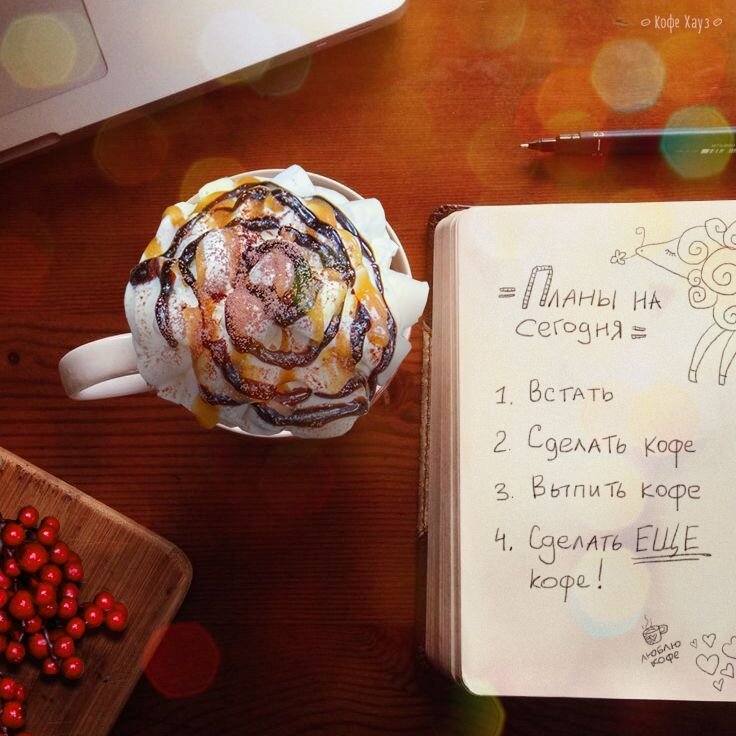 Кофе Хауз
= Планы на
сегодня =
1. Встать
2. Сделать кофе
3. Выпить кофе
4. Сделать ЕЩЕ
кофе!
люблю
кофе